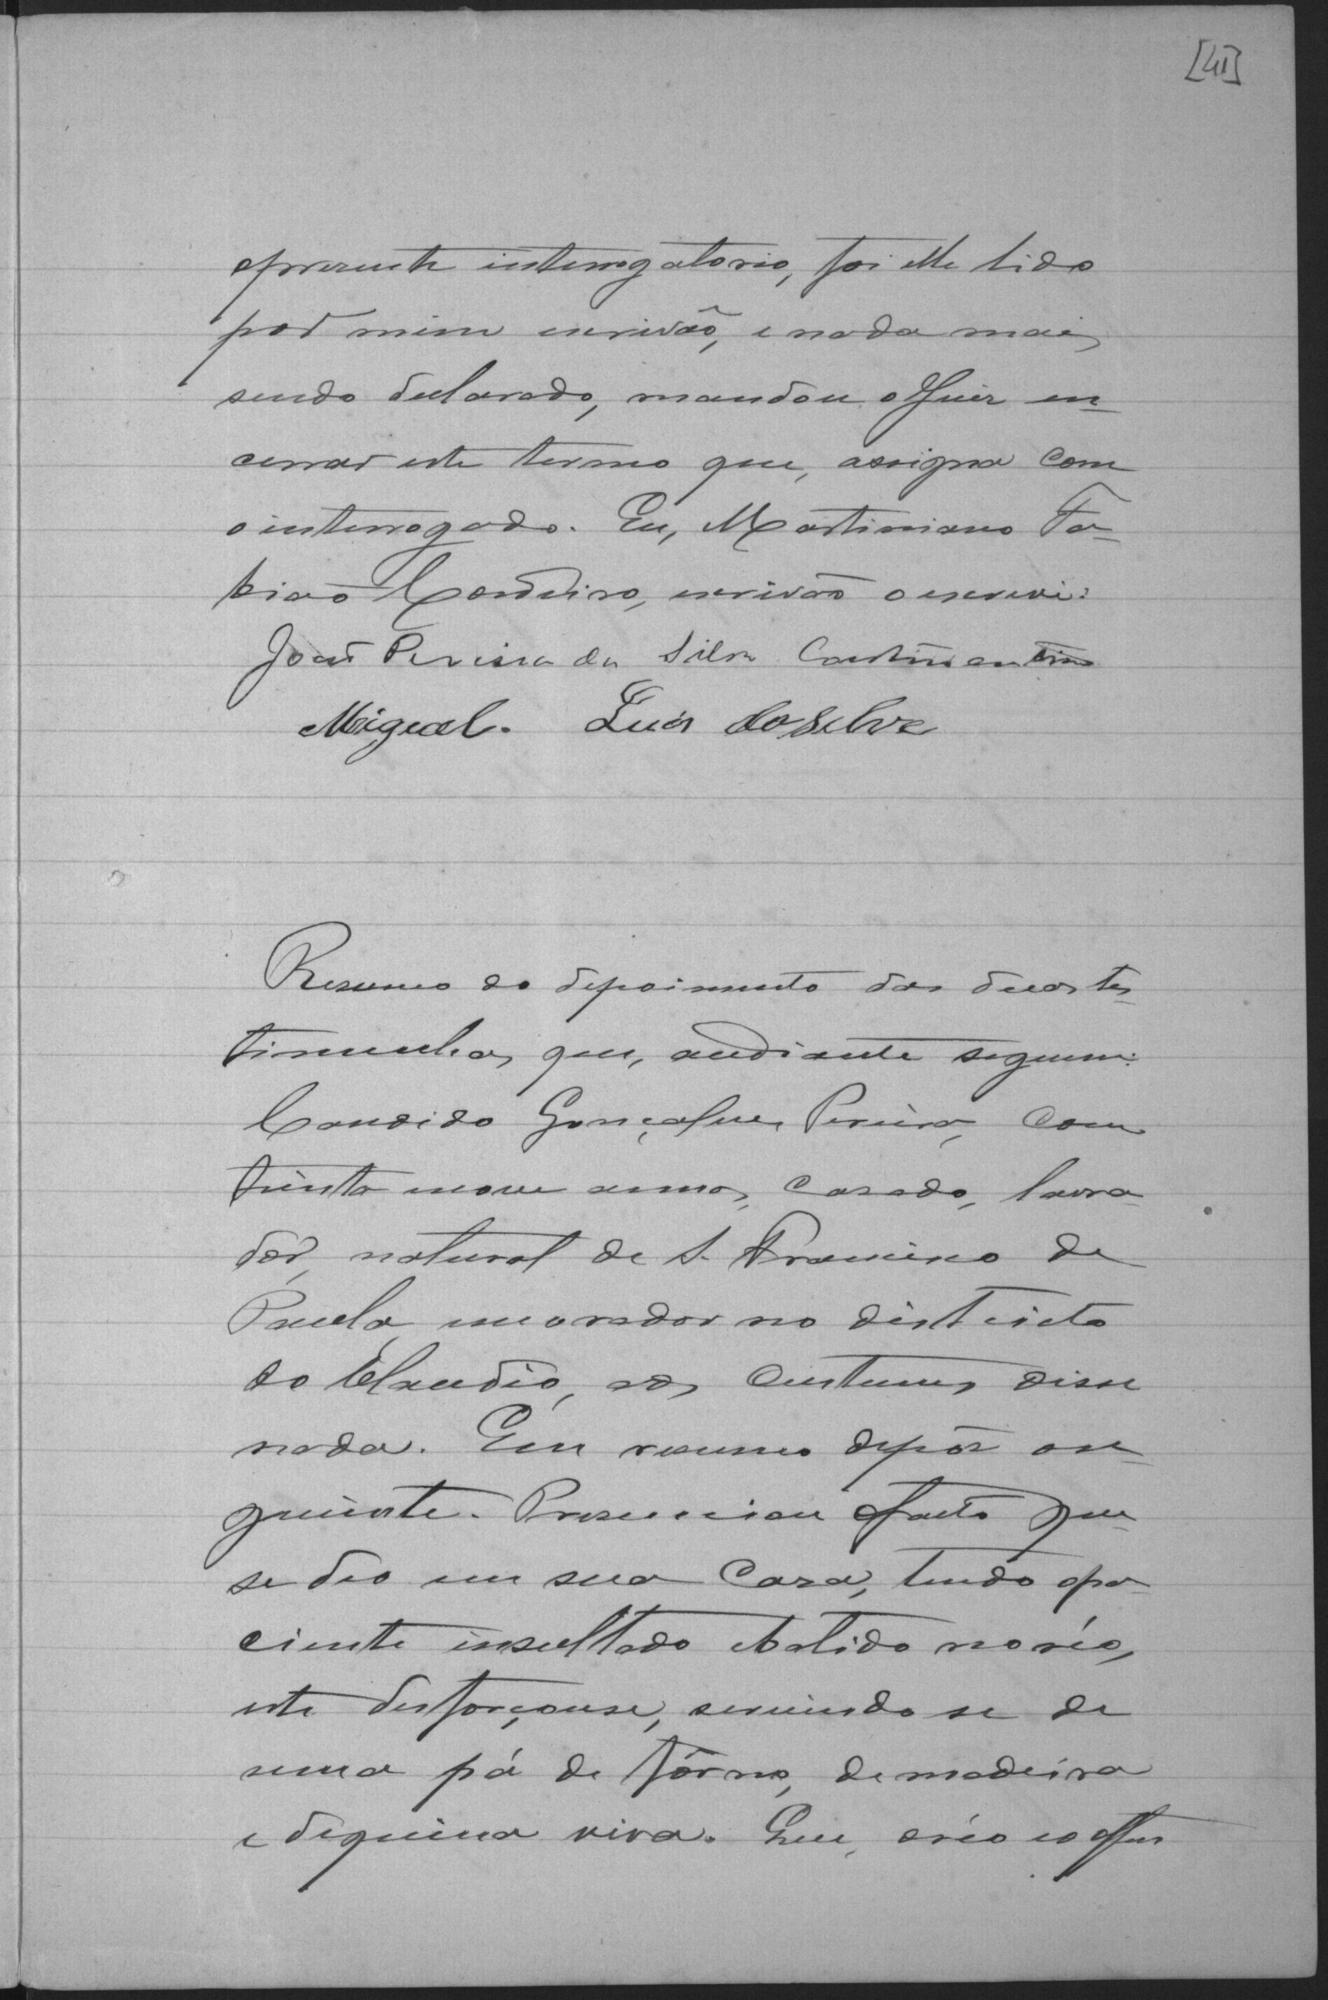 [41]
opresente interrogatorio, foi elle lido
por mim escrivão, e nada mais
sendo declarado, mandou o Juiz en-
cerrar este termo que, assigna com
o interrogado. Eu, Martiniano Fa-
bião Cordeiro, escrivão o escrevi.
João Pereira da Silva
Miguel. Luis da Silva
Resumo do depoimento das duas tes-
timunhas que, audiante seguem:
Candido Gonçalves Pereira, com
trinta nove annos, casado, lavra-
dor, natural de S. Francisco de
Paula, morador no districto
do Claudio, aos custumes disse
nada. Em resumo depôz o se-
guinte. Presenciou o facto que
se deo em sua casa, tendo o pa-
ciente insultado e batido no réo,
este desforçouse, servindo se de
uma pá de fôrno, de madeira
e de quina viva. Que, o réo e o offen